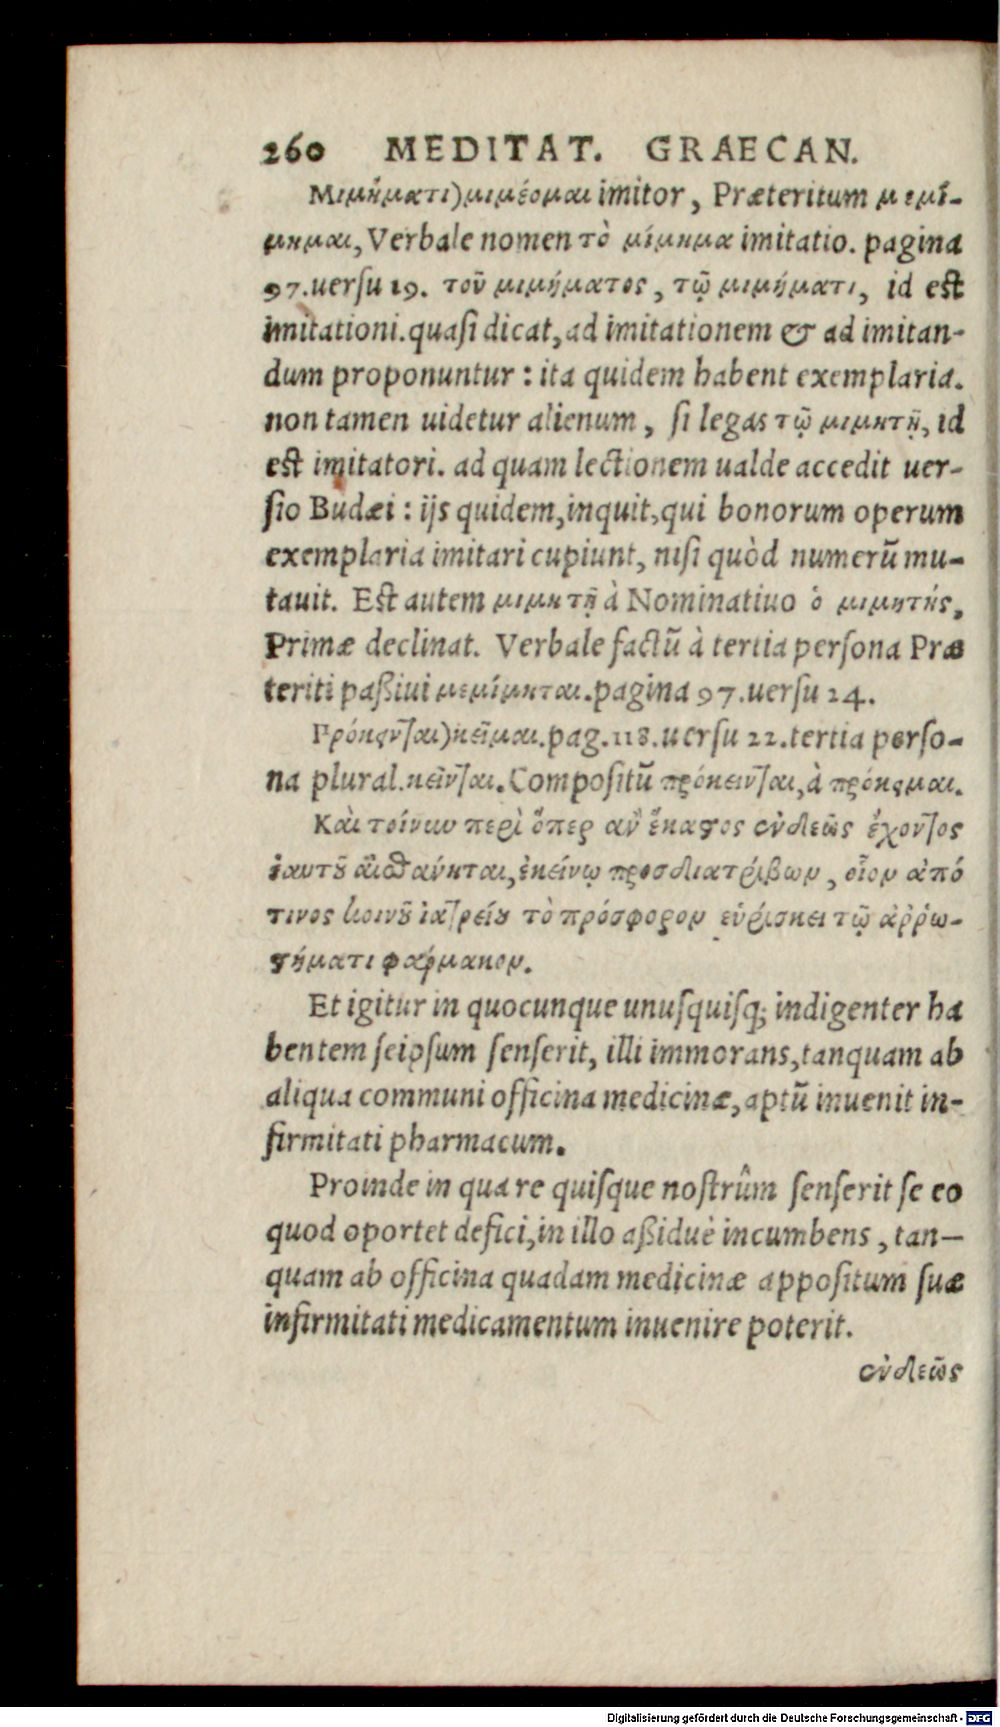 260 MEDITAT. GRAECAN.
Μιμήματι) μιμέομαι imitor, Præteritum μεμί-
μημαι, Verbale nomen τὸ μίμημα imitatio. pagina
97. uersu 19. τοῦ μιμήματος, τῷ μιμήματι, id est
imitationi. quasi dicat, ad imitationem & ad imitan-
dum proponuntur : ita quidem habent exemplaria.
non tamen uidetur alienum, si legas τῷ μιμητῇ, id
est imitatori. ad quam lectionem ualde accedit uer-
sio Budæi : ijs quidem, inquit, qui bonorum operum
exemplaria imitari cupiunt, nisi quòd numerū mu-
tauit. Est autem μιμητῇ à Nominatiuo ὁ μιμητής,
Primæ declinat. Verbale factū à tertia persona Præ
teriti paßiui μεμίμηται. pagina 97. uersu 24.
Πρόκεινται) κεῖμαι. pag. 118. uersu 22. tertia perso-
na plural. κεῖνται. Compositū πρόκεινται, à πρόκειμαι.
Καὶ τοίνυν περὶ ὅπερ ἂν ἕκαστος ἐνδεῶς ἔχοντος
ἑαυτοῦ αἰσθάνηται, ἐκείνῳ προσδιατρίβων, οἷον ἀπό
τινος κοινοῦ ἰατρείου τὸ πρόσφορον εὑρίσκει τῷ ἀῤῥω-
στήματι φάρμακον.
Et igitur in quocunque unusquisq; indigenter ha
bentem seipsum senserit, illi immorans, tanquam ab
aliqua communi officina medicinæ, aptū inuenit in-
firmitati pharmacum.
Proinde in qua re quisque nostrûm senserit se eo
quod oportet defici, in illo aßiduè incumbens, tan-
quam ab officina quadam medicinæ appositum suæ
infirmitati medicamentum inuenire poterit.
ἐνδεῶς
Digitalisierung gefördert durch die Deutsche Forschungsgemeinschaft - DFG